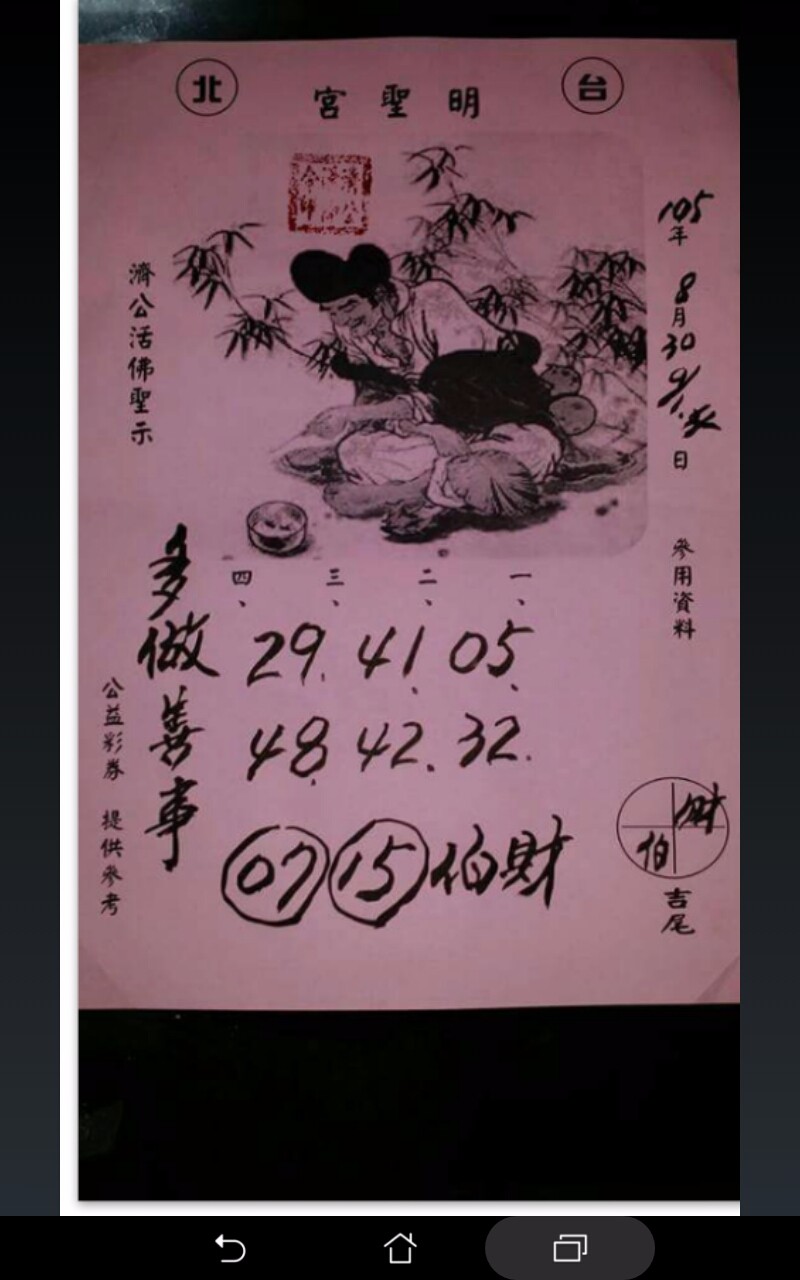 台北
明聖宮
105年8月30 9/1.
日
參用資料
濟公活佛聖示
一、
二、
三、
四、
05. 41. 29.
32. 42. 48.
07 15 伯財
多做善事
公益彩券 提供參考
財
伯
吉尾